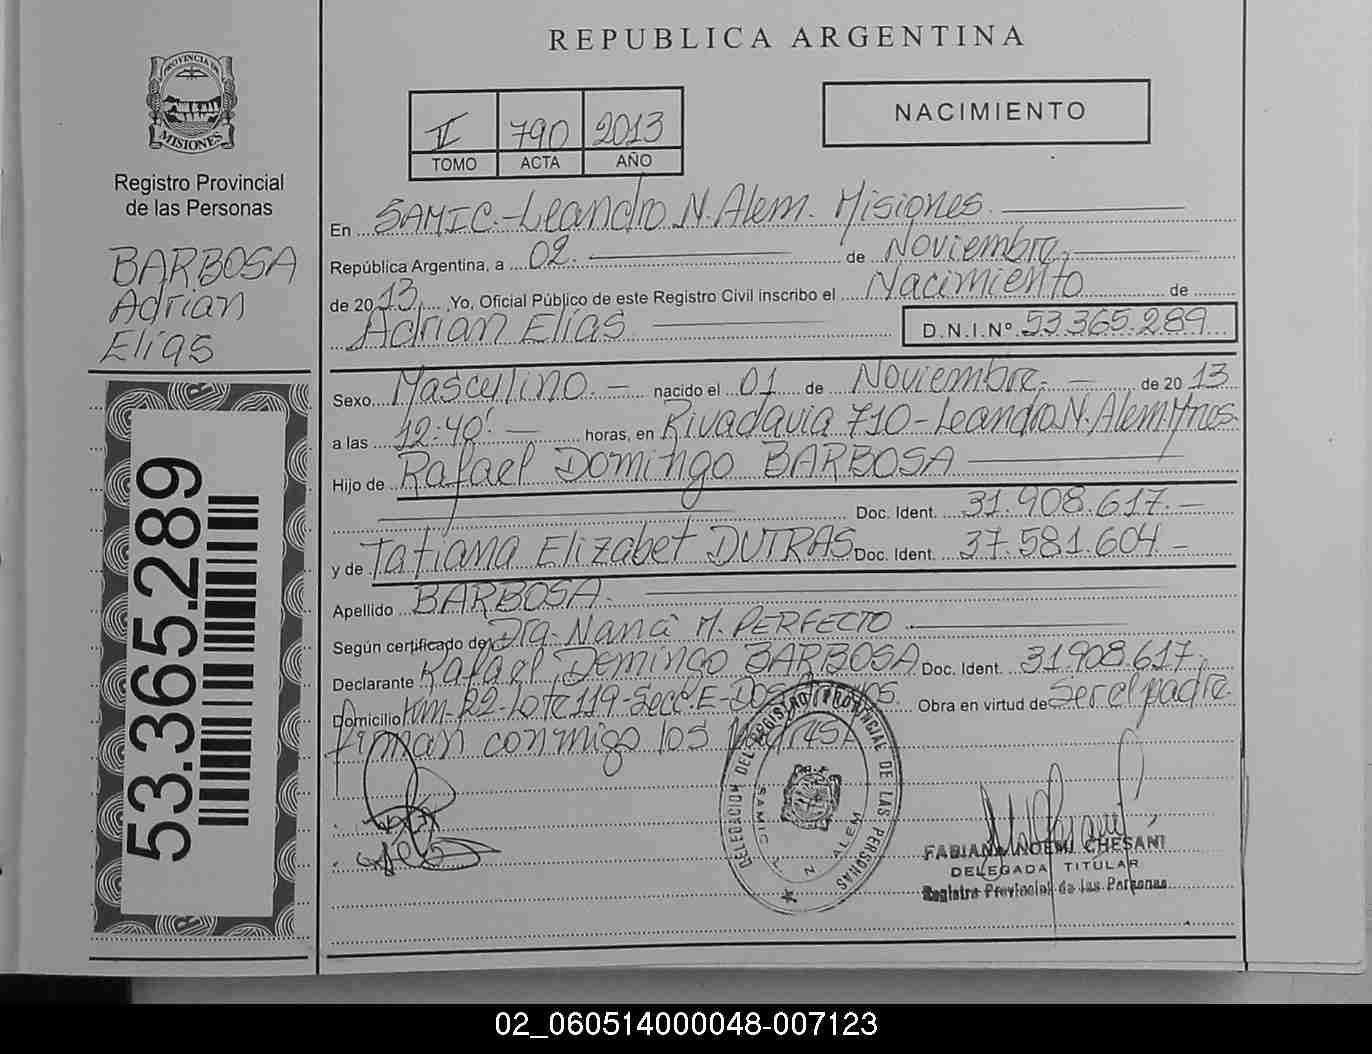 REPUBLICA ARGENTINA
PROVINCIA DE
MISIONES
Registro Provincial
de las Personas
BARBOSA
Adrian
Elías
53.365.289
II 790 2013
TOMO ACTA AÑO
NACIMIENTO
En SAMIC.-Leandro N. Alem. Misiones.
República Argentina, a 02. de Noviembre.
de 2013. Yo, Oficial Público de este Registro Civil inscribo el Nacimiento de
Adrian Elías D.N.I.Nº 53.365.289
Sexo Masculino.- nacido el 01 de Noviembre.- de 2013
a las 12:40'.- horas, en Rivadavia 710-Leandro N. Alem Mnes.
Hijo de Rafael Domingo BARBOSA
Doc. Ident. 31.908.617.-
y de Tatiana Elizabet DUTRAS Doc. Ident. 37.581.604.-
Apellido BARBOSA.
Según certificado de Dra. Nanci M. PERFECTO.
Declarante Rafael Domingo BARBOSA Doc. Ident. 31.908.617.
Domicilio Km. 22-Lote 119-Secc. E-Dos Obra en virtud de Ser el padre.
firman conmigo los
DELEGACION DEL REGISTRO PROVINCIAL DE LAS PERSONAS
SAMIC L N ALEM
FABIANA NOEMI CHESANI
DELEGADA TITULAR
Registro Provincial de las Personas
02_060514000048-007123